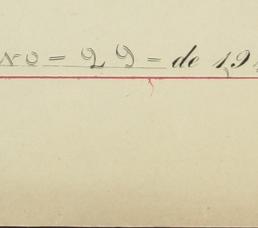 No = 29 = de 19